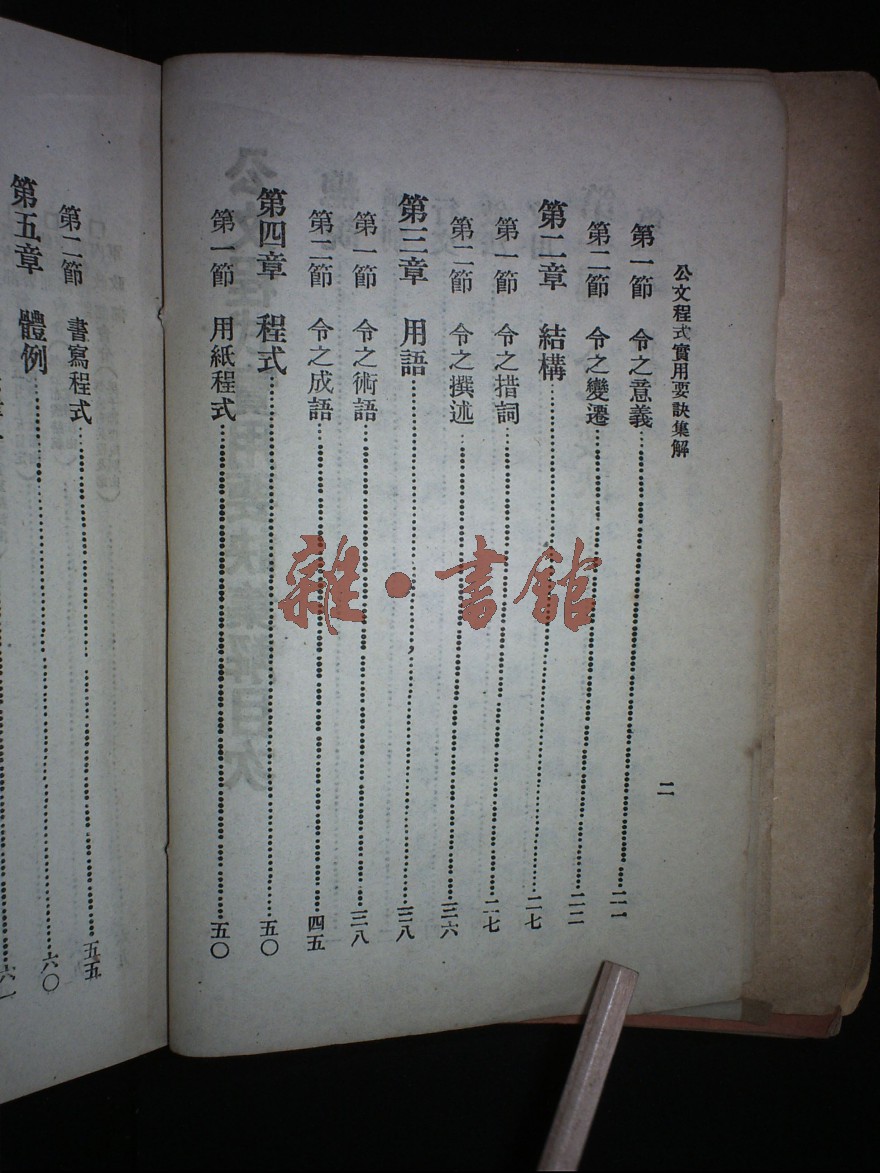 公文程式實用要訣集解
二
第一節 令之意義 二一
第二節 令之變遷 二二
第二章 結構 二七
第一節 令之措詞 二七
第二節 令之撰述 三六
第三章 用語 三八
第一節 令之術語 三八
第二節 令之成語 四五
第四章 程式 五〇
第一節 用紙程式 五〇
第二節 書寫程式 五五
第五章 體例 六〇
六一
雜·書館